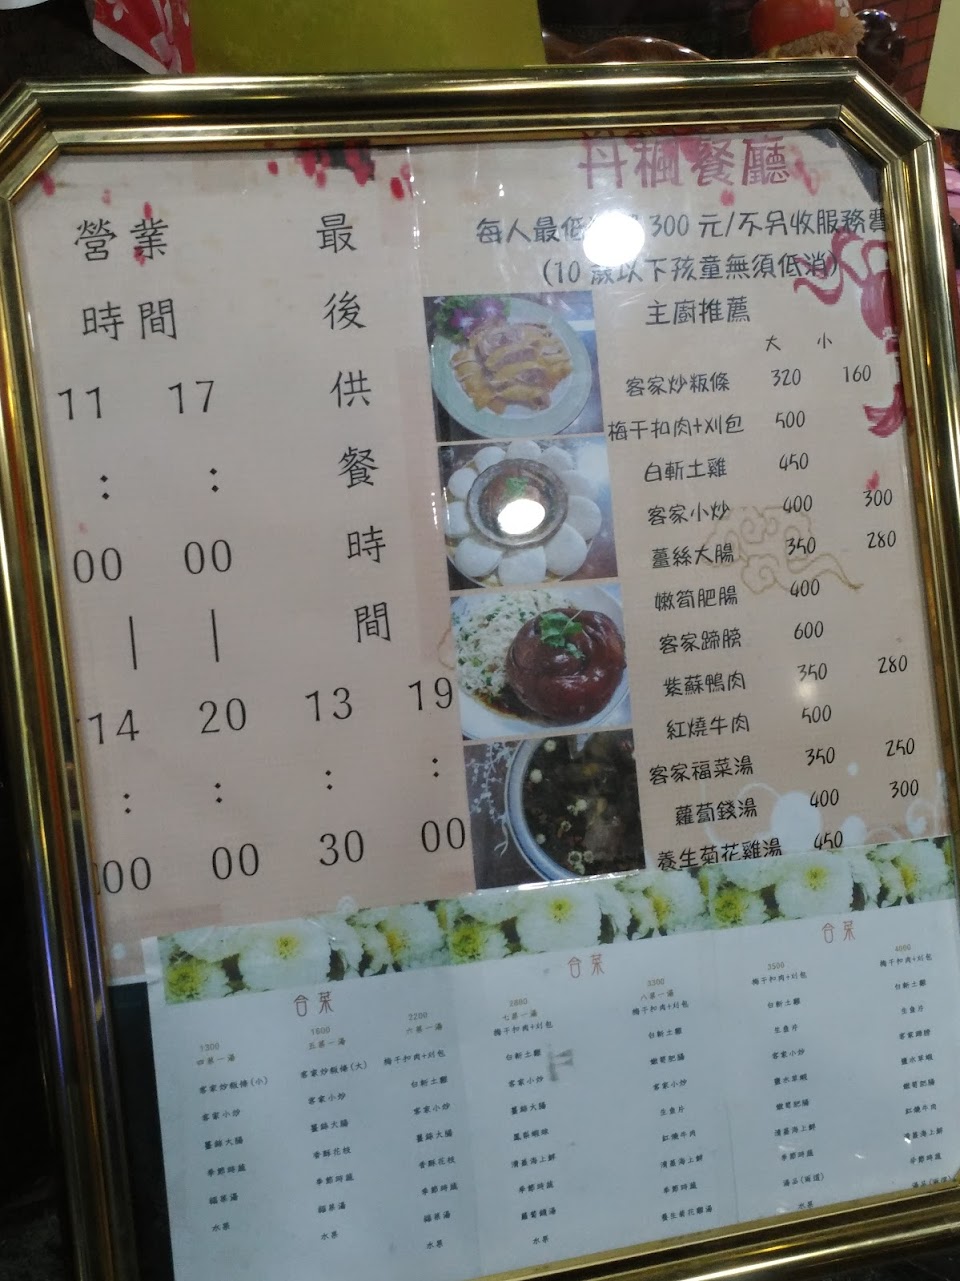 丹楓餐廳
每人最低 300 元/不另收服務費
(10 歲以下孩童無須低消)
營業時間
11:00|14:00
17:00|20:00
最後供餐時間
13:30
19:00
主廚推薦
大 小
客家炒粄條 320 160
梅干扣肉+刈包 500
白斬土雞 450
客家小炒 400 300
薑絲大腸 350 280
嫩筍肥腸 400
客家蹄膀 600
紫蘇鴨肉 350 280
紅燒牛肉 500
客家福菜湯 350 250
蘿蔔錢湯 400 300
養生菊花雞湯 450
合菜
1300
四菜一湯
客家炒粄條(小)
客家小炒
薑絲大腸
季節時蔬
福菜湯
水果
1600
五菜一湯
客家炒粄條(大)
客家小炒
薑絲大腸
香酥花枝
季節時蔬
福菜湯
水果
2200
六菜一湯
梅干扣肉+刈包
白斬土雞
客家小炒
薑絲大腸
香酥花枝
季節時蔬
福菜湯
水果
合菜
2800
七菜一湯
梅干扣肉+刈包
白斬土雞
客家小炒
薑絲大腸
鳳梨蝦球
清蒸海上鮮
季節時蔬
蘿蔔錢湯
水果
3300
八菜一湯
梅干扣肉+刈包
白斬土雞
嫩筍肥腸
客家小炒
生魚片
紅燒牛肉
清蒸海上鮮
季節時蔬
養生菊花雞湯
合菜
3500
梅干扣肉+刈包
白斬土雞
生魚片
客家小炒
鹽水草蝦
嫩筍肥腸
清蒸海上鮮
季節時蔬
湯品(兩道)
水果
4000
梅干扣肉+刈包
白斬土雞
生魚片
客家蹄膀
鹽水草蝦
嫩筍肥腸
紅燒牛肉
清蒸海上鮮
季節時蔬
湯品(兩道)